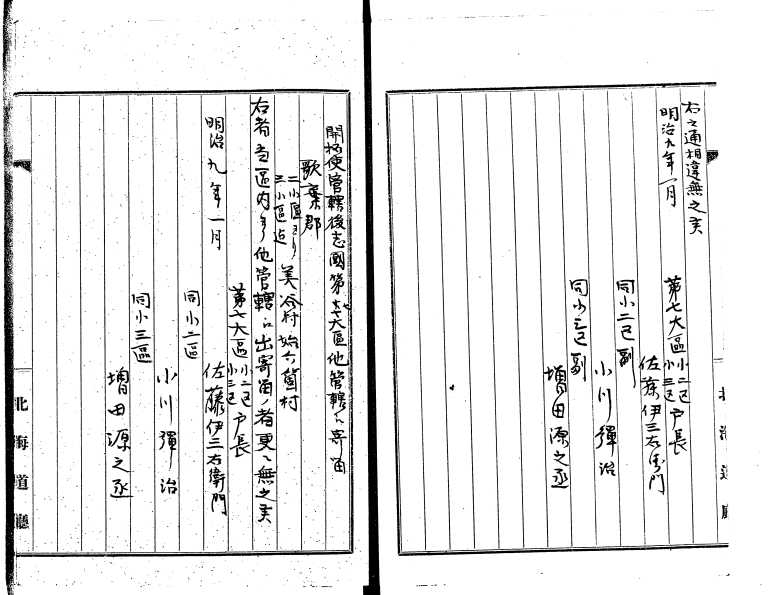 右之通相違無之矣
明治九年一月
第七大區小二区小三区戸長
佐藤伊三右衛門
同小二区副
小川彈治
同小三区副
増田源之丞
開拓使管轄後志國第七大區他管轄ニ寄留
歌棄郡
二小區ヨリ
三小區迠
美冷村始六箇村
右者當區内ヨリ他管轄ニ出寄留ノ者更ニ無之矣
明治九年一月
第七大區小二区小三区戸長
佐藤伊三右衛門
同小二區
小川彈治
同小三區
増田源之丞
北海道廳